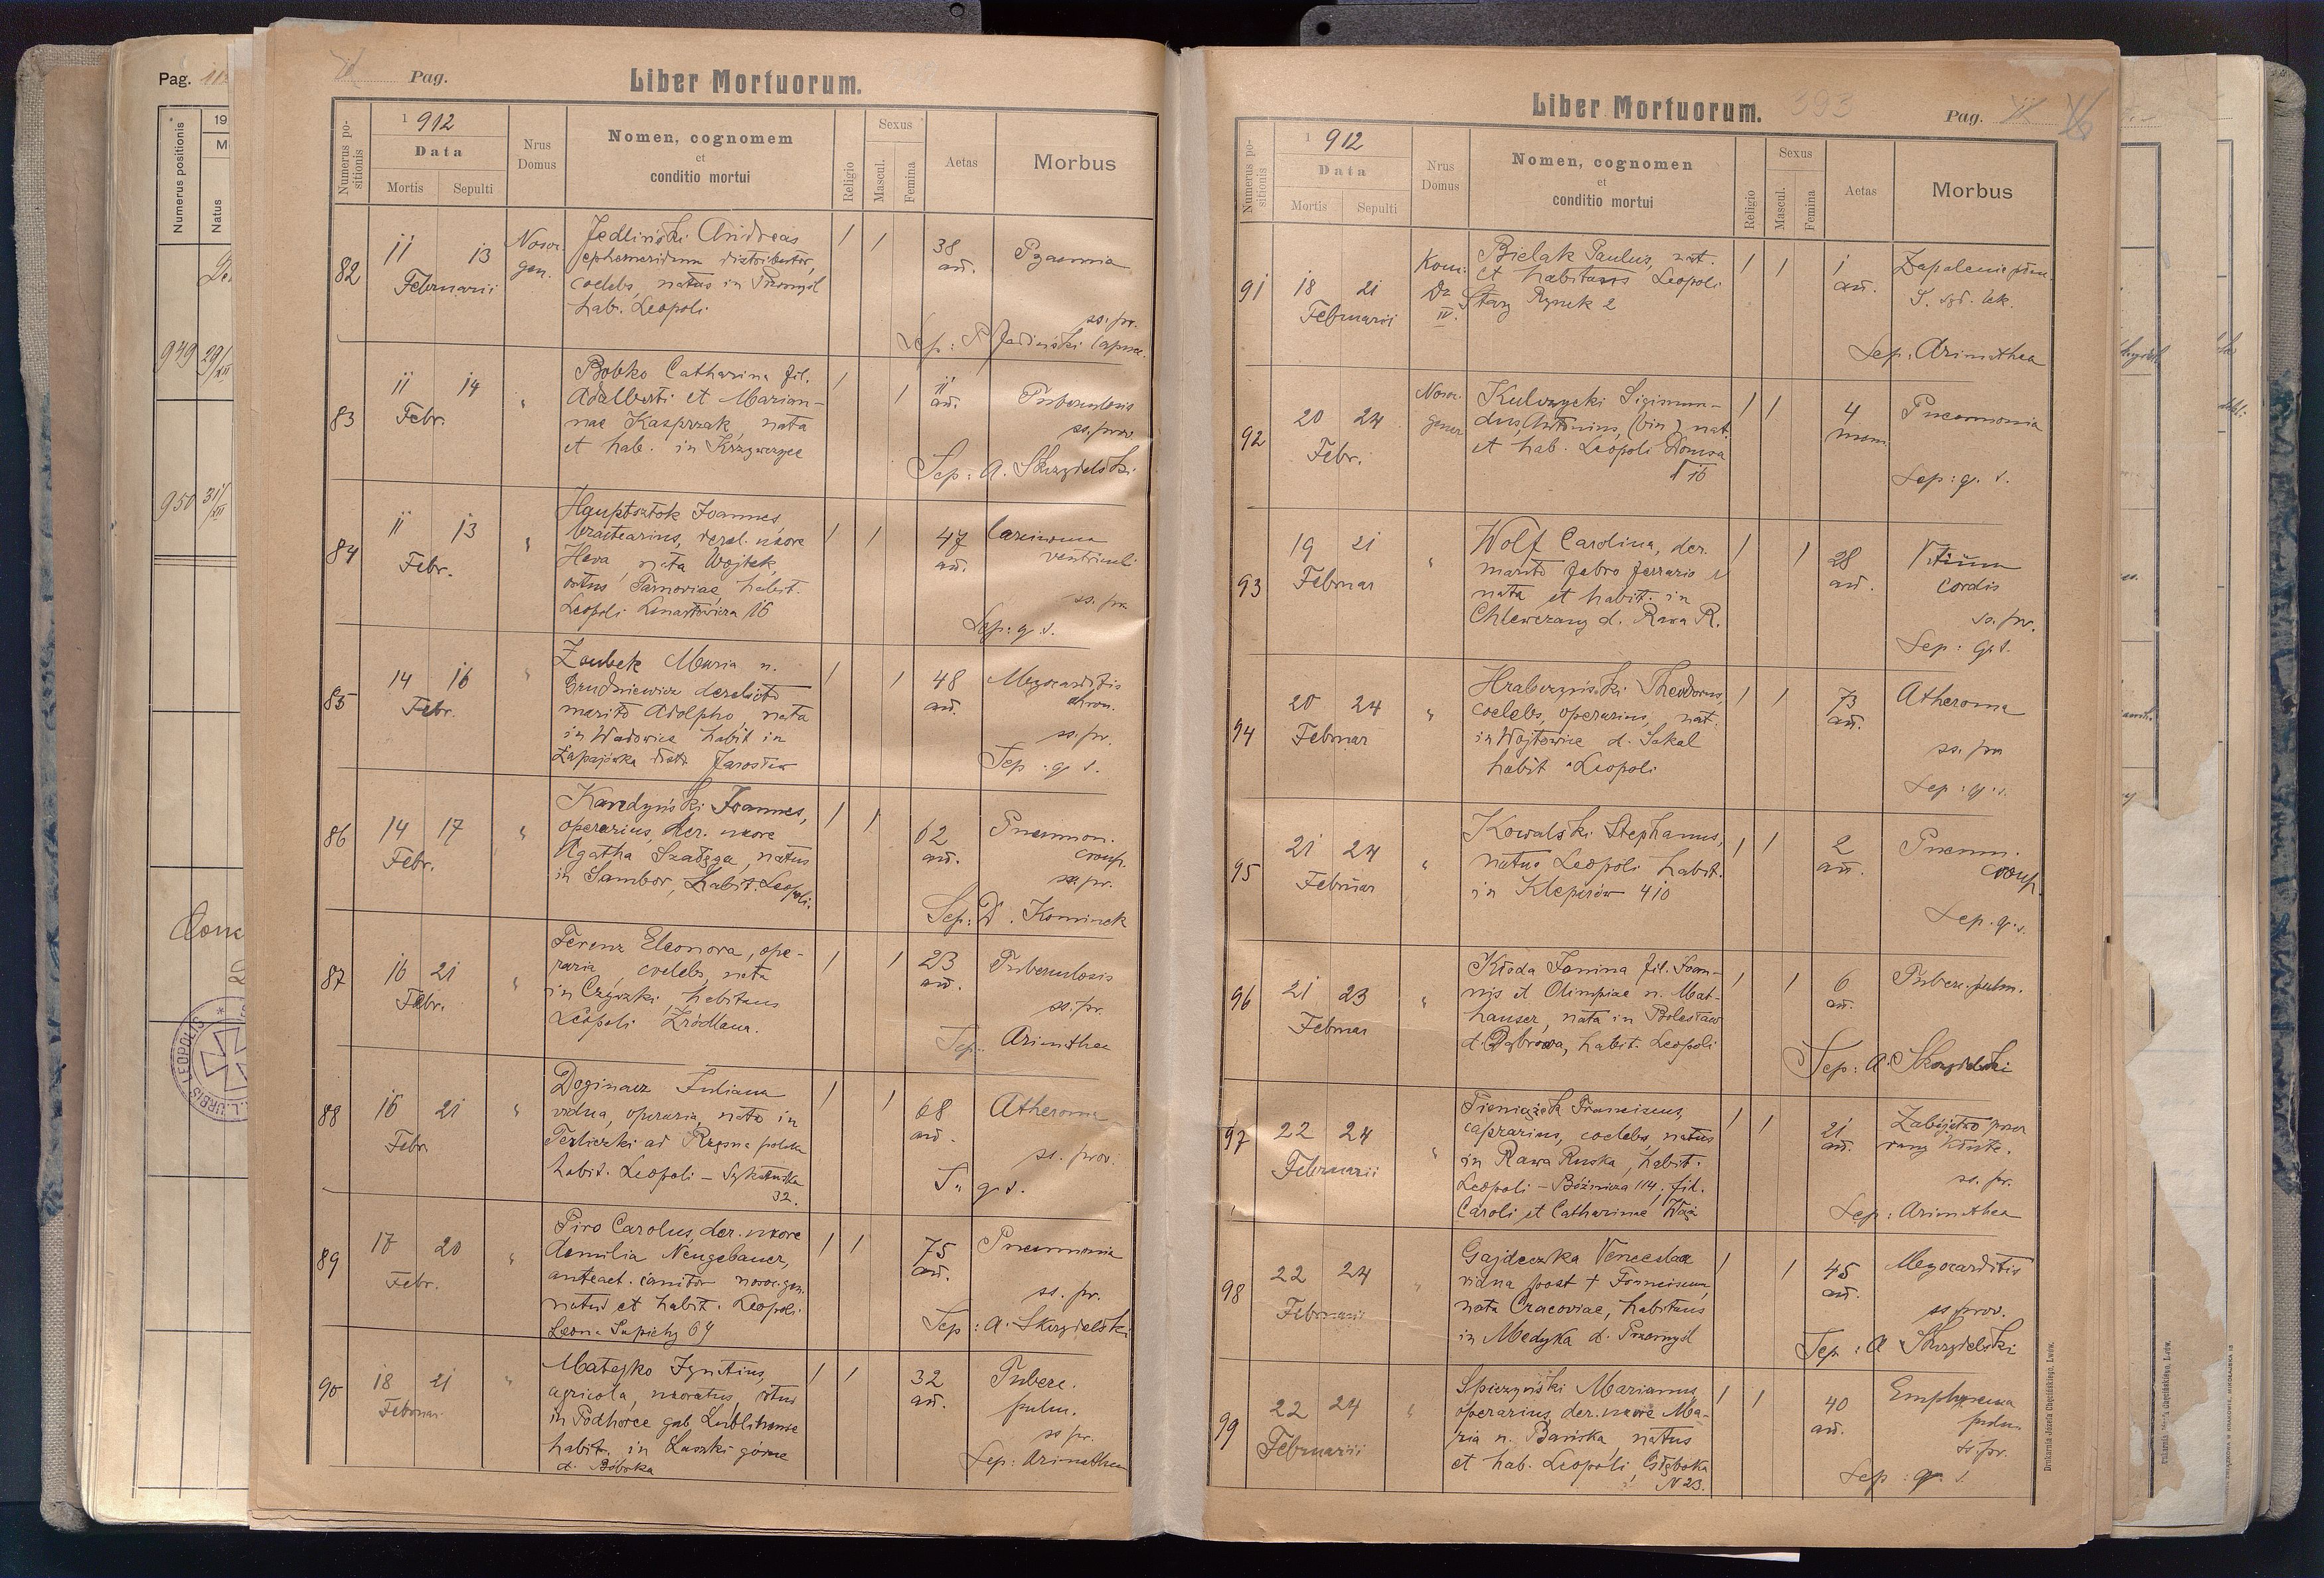 Pag.
Numerus positionis
19
M
Natus
949 29/XII
950 31/XII
L. URBIS LEOPOLIS
Pag.
Liber Mortuorum.
Numerus positionis
1912
Data
Mortis Sepulti
Nrus Domus
Nomen, cognomem
et
conditio mortui
Religio
Sexus
Mascul.
Femina
Aetas
Morbus
82
11 13
Februarii
Nosoc. gen.
Jedliński Andreas
ephemeridum distributor,
coelebs, natus in Przemyśl
hab. Leopoli
1 1
38
an.
Pyaemia
ss. pr.
Sep:
83
11 14
Febr.
"
Bobko Catharina fil.
Adalberti et Marian-
nae Kasprzak, nata
et hab. in Krzywczyce
1 1
11
an.
Tuberculosis
ss. prov.
Sep: A. Skrzydelski
84
11 13
Febr.
"
Hauptsztok Joannes,
derel. uxore
Heva nata Wojtek,
ortus Tarnoviae, habit.
Leopoli Lenartowicza 16
1 1
47
an.
Carcinoma
ventriculi
ss. pr.
Sep: g. s.
85
14 16
Febr.
"
Zoubek Maria n.
Grudniewicz derelicto
marito Adolpho, nata
in Wadowice habit in
Łapajówka distr. Jarosław
1 1
48
an.
Myocarditis
chron.
ss. pr.
Sep: g. s.
86
14 17
Febr.
"
Joannes,
operarius, der. uxore
Agatha, natus
in Sambor, habit. Leopoli.
1 1
62
an.
Pneumon.
croup.
ss. pr.
Sep: D. Kominek
87
16 21
Febr.
"
Ferenz Eleonora, ope-
raria, coelebs, nata
in Czyszki, habitans
Leopoli Źródlana.
1 1
23
an.
Tuberculosis
ss. pr.
Sep: Arimathea
88
16 21
Febr.
"
Juliana
vidua, operaria, nata in
ad Rzęsna polska
habit. Leopoli – Sykstuska
32.
1 1
68
an.
Atheroma
ss. prov.
S. g. s.
89
17 20
Febr.
"
Piro Carolus, der. uxore
Aemilia Neugebauer,
anteact. ianitor nosoc. gen.
natus et habit. Leopoli.
Leona Sapiehy 64
1 1
75
an.
Pneumonia
ss. pr.
Sep: A. Skrzydelski
90
18 21
Februar.
"
Matejko Ignatius,
agricola, uxoratus, ortus
in Podhorce gub.
habit. in Laszki górne
d. Bóbrka
1 1
32
an.
Tuberc.
pulm.
ss. pr.
Sep: Arimathea
Liber Mortuorum.
393
Pag.
Numerus positionis
1912
Data
Mortis Sepulti
Nrus Domus
Nomen, cognomen
et
conditio mortui
Religio
Sexus
Mascul.
Femina
Aetas
Morbus
91
18 21
Februarii
Kom. Dz IV.
Bielak Paulus, nat.
et habitans Leopoli
Stary Rynek 2
1 1
1
an.
Zapalenie
Sep: Arimathea
92
20 24
Febr.
Nosoc. gener
Kulczycki Sigismun-
dus, Antonius, (bin) nat.
et hab. Leopoli
16
1 1
4
mens.
Pneumonia
Sep: g. s.
93
19 21
Februar
"
Wolf Carolina, der.
marito fabro ferrario
nata et habit. in
Chlewczany d. Rawa R.
1 1
28
an.
Vitium
cordis
ss. pr.
Sep: g. s.
94
20 24
Februar
"
Hrabczyński Theodorus,
coelebs, operarius, nat.
in Wojtowice d. Sokal
habit Leopoli
1 1
73
an.
Atheroma
ss. pr
Sep: g. s.
95
21 24
Februar
"
Kowalski Stephanus,
natus Leopoli habit.
in Kleparów 410
1 1
2
an.
Pneum.
croup
Sep. g. s.
96
21 23
Februar
"
Kłoda Janina fil. Joan-
nis et Olimpiae n. Mat-
hauser, nata in Bolesław
d. Dąbrowa, habit. Leopoli
1 1
6
an.
Tuberc. pulm.
Sep: A. Skrzydelski
97
22 24
Februarii
"
Pieniążek Franciscus,
coelebs, natus
in Rawa Ruska, habit.
Leopoli – Bóżnicza 114; fil.
Caroli et Catharinae
1 1
21
an.
Zabójstwo przez
rany kłute.
ss. pr.
Sep: Arimathea
98
22 24
Februarii
"
Gajdeczka Venceslaa
vidua post + Franciscum,
nata Cracoviae, habitans
in Medyka d. Przemyśl
1 1
45
an.
Myocarditis
ss. prov.
Sep: A Skrzydelski
99
22 24
Februarii
"
Spiczyński Marianus,
operarius, der. uxore Ma-
ria n. Bańska, natus
et hab. Leopoli, Głęboka
N 23.
1 1
40
an.
Emphysema
pulm.
ss. pr.
Sep: g. s.
Drukarnia Józefa Chęcińskiego, Lwów.